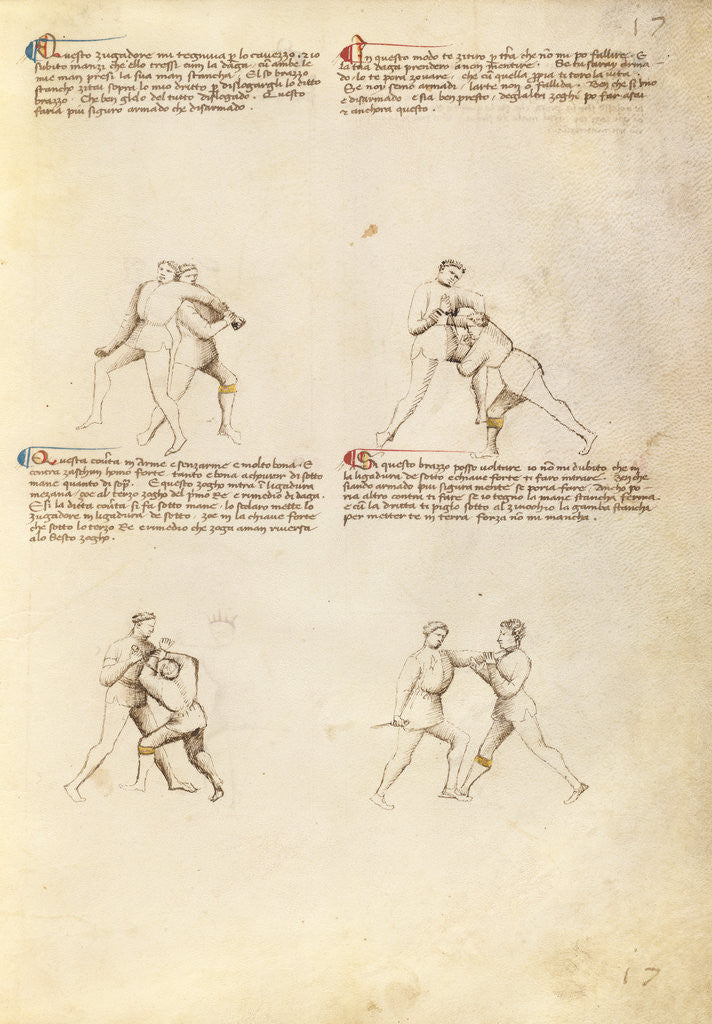 17
Questo zugadore mi tegniva p lo cavezzo. & io
subito inanzi che ello tresse cum la daga, cum ambe le
mie man presi la sua man stancha. El so brazzo
stancho zitai sopra lo mio dritto p dislogargli lo ditto
brazzo. Che ben gielo del tutto dislogado. Questo
faria più siguro armado che disarmado.
In questo modo te zitirò p tera che non mi pò fallire. E
la tua daga prenderò a non mentire. Se tu saray arma
do, lo te porà zovare, che cum quella ppria ti torò la vita.
Se noii semo armadi, larte non è fallida. Ben che si uno
è disarmado e sia ben presto, deglaltri zoghi pò far asai
& anchora questo.
Questa coverta in arme e senzarme e molto bona. E
contra zaschun homo forte tanto e bona a choverir di sotto
mane quanto di sopra. E questo zogho intra in ligadura
mezana, zoe al terzo zogho del primo Re e rimedio di daga.
E si la ditta coverta si fa sotto mane, lo scolaro mette lo
zugadore in ligadura de sotto, zoe in la chiave forte
che sotto lo terzo Re e rimedio che zoga a man riversa
a lo Sesto zogho.
Si questo brazzo posso voltare io non mi dubito che in
la ligadura de sotto e chiave forte ti farò intrare. Ben che
siando armado più siguramente se poria fare. Ancho po
ria altro contra ti fare, se io tegno la mane stancha ferma
e cum la dritta ti piglo sotto al zinochio la gamba stancha
per metter te in terra forza non mi mancha.
17